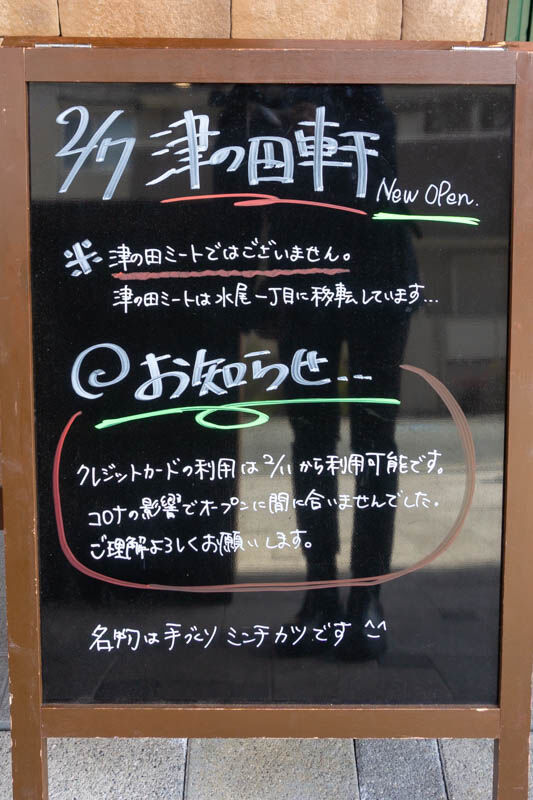 2/7 津の田軒 New Open.
※ 津の田ミートではございません。
津の田ミートは水尾一丁目に移転しています...
@お知らせ...
クレジットカードの利用は2/11から利用可能です。
コロナの影響でオープンに間に合いませんでした.
ご理解よろしくお願いします。
名物は手づくりミンチカツです ^^